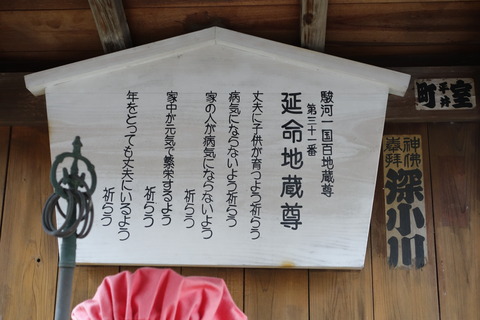 駿河一国百地蔵尊
第三十一番
延命地蔵尊
丈夫に子供が育つよう祈らう
病気にならないよう祈らう
家の人が病気にならないよう
祈らう
家中が元気で繁栄するよう
祈らう
年をとっても丈夫にいるよう
祈らう
室
町
神佛
奉拝
深小川